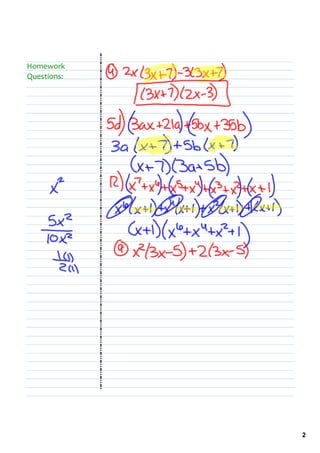 Homework
Questions:
4) 2x(3x+7)-3(3x+7)
(3x+7)(2x-3)
5d) (3ax+21a)+(5bx+35b)
3a(x+7)+5b(x+7)
(x+7)(3a+5b)
12) (x⁷+x⁶)+(x⁵+x⁴)+(x³+x²)+(x+1)
x²
x⁶(x+1)+x⁴(x+1)+x²(x+1)+1(x+1)
5x²
10x²
(x+1)(x⁶+x⁴+x²+1)
9) x²(3x-5)+2(3x-5)
1(1)
2(1)
2